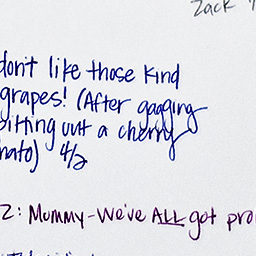 Zack
don't like those kind
grapes! (After gagging
spitting out a cherry
mato) 4/2
2: Mommy-We've ALL got pro